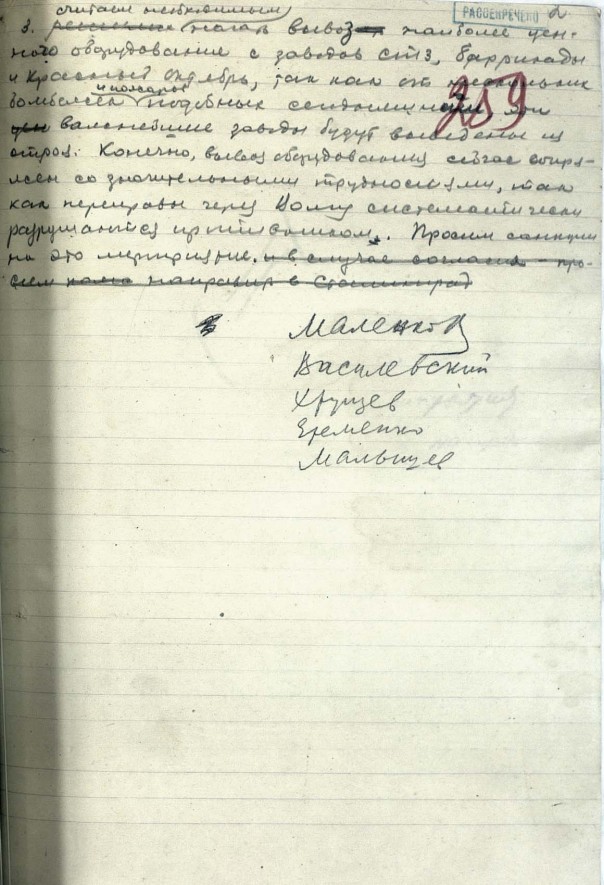 РАССЕКРЕЧЕНО 2
считаем необходимым
3. решение начать вывоз наиболее цен-
ного оборудование с заводов СТЗ, Баррикады
и Красный Октябрь, так как от нескольких
259
и пожаров
бомбежек подобных сегодняшней эти
важнейшие заводы будут выведены из
строя. Конечно, вывоз оборудования сейчас сопря-
жен со значительными трудностями, так
как переправы через Волгу систематически
разрушаются противником. Просим санкции
на это мероприятие. и в случае согласия – про-
сим направить в Сталинград
Маленков
Василевский
Хрущев
Еременко
Малышев